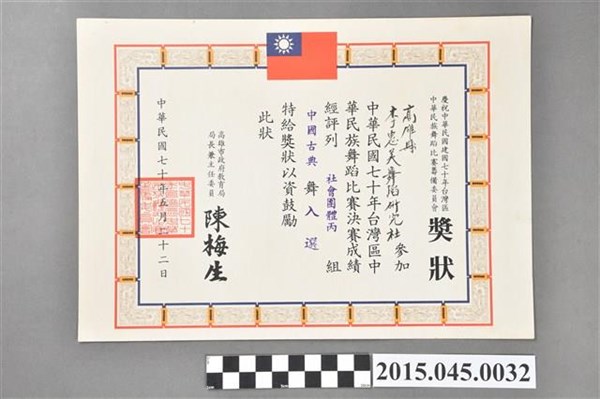 慶祝中華民國建國七十年台灣區
中華民族舞蹈比賽籌備委員會
獎狀
高雄縣
李忠義舞蹈研究社 參加
中華民國七十年台灣區中
華民族舞蹈比賽決賽成績
經評列 社會團體丙 組
中國古典 舞 入選
特給獎狀以資鼓勵
此狀
高雄市政府教育局
局長兼主任委員 陳梅生
中華民國七十年五月二十二日
2015.045.0032